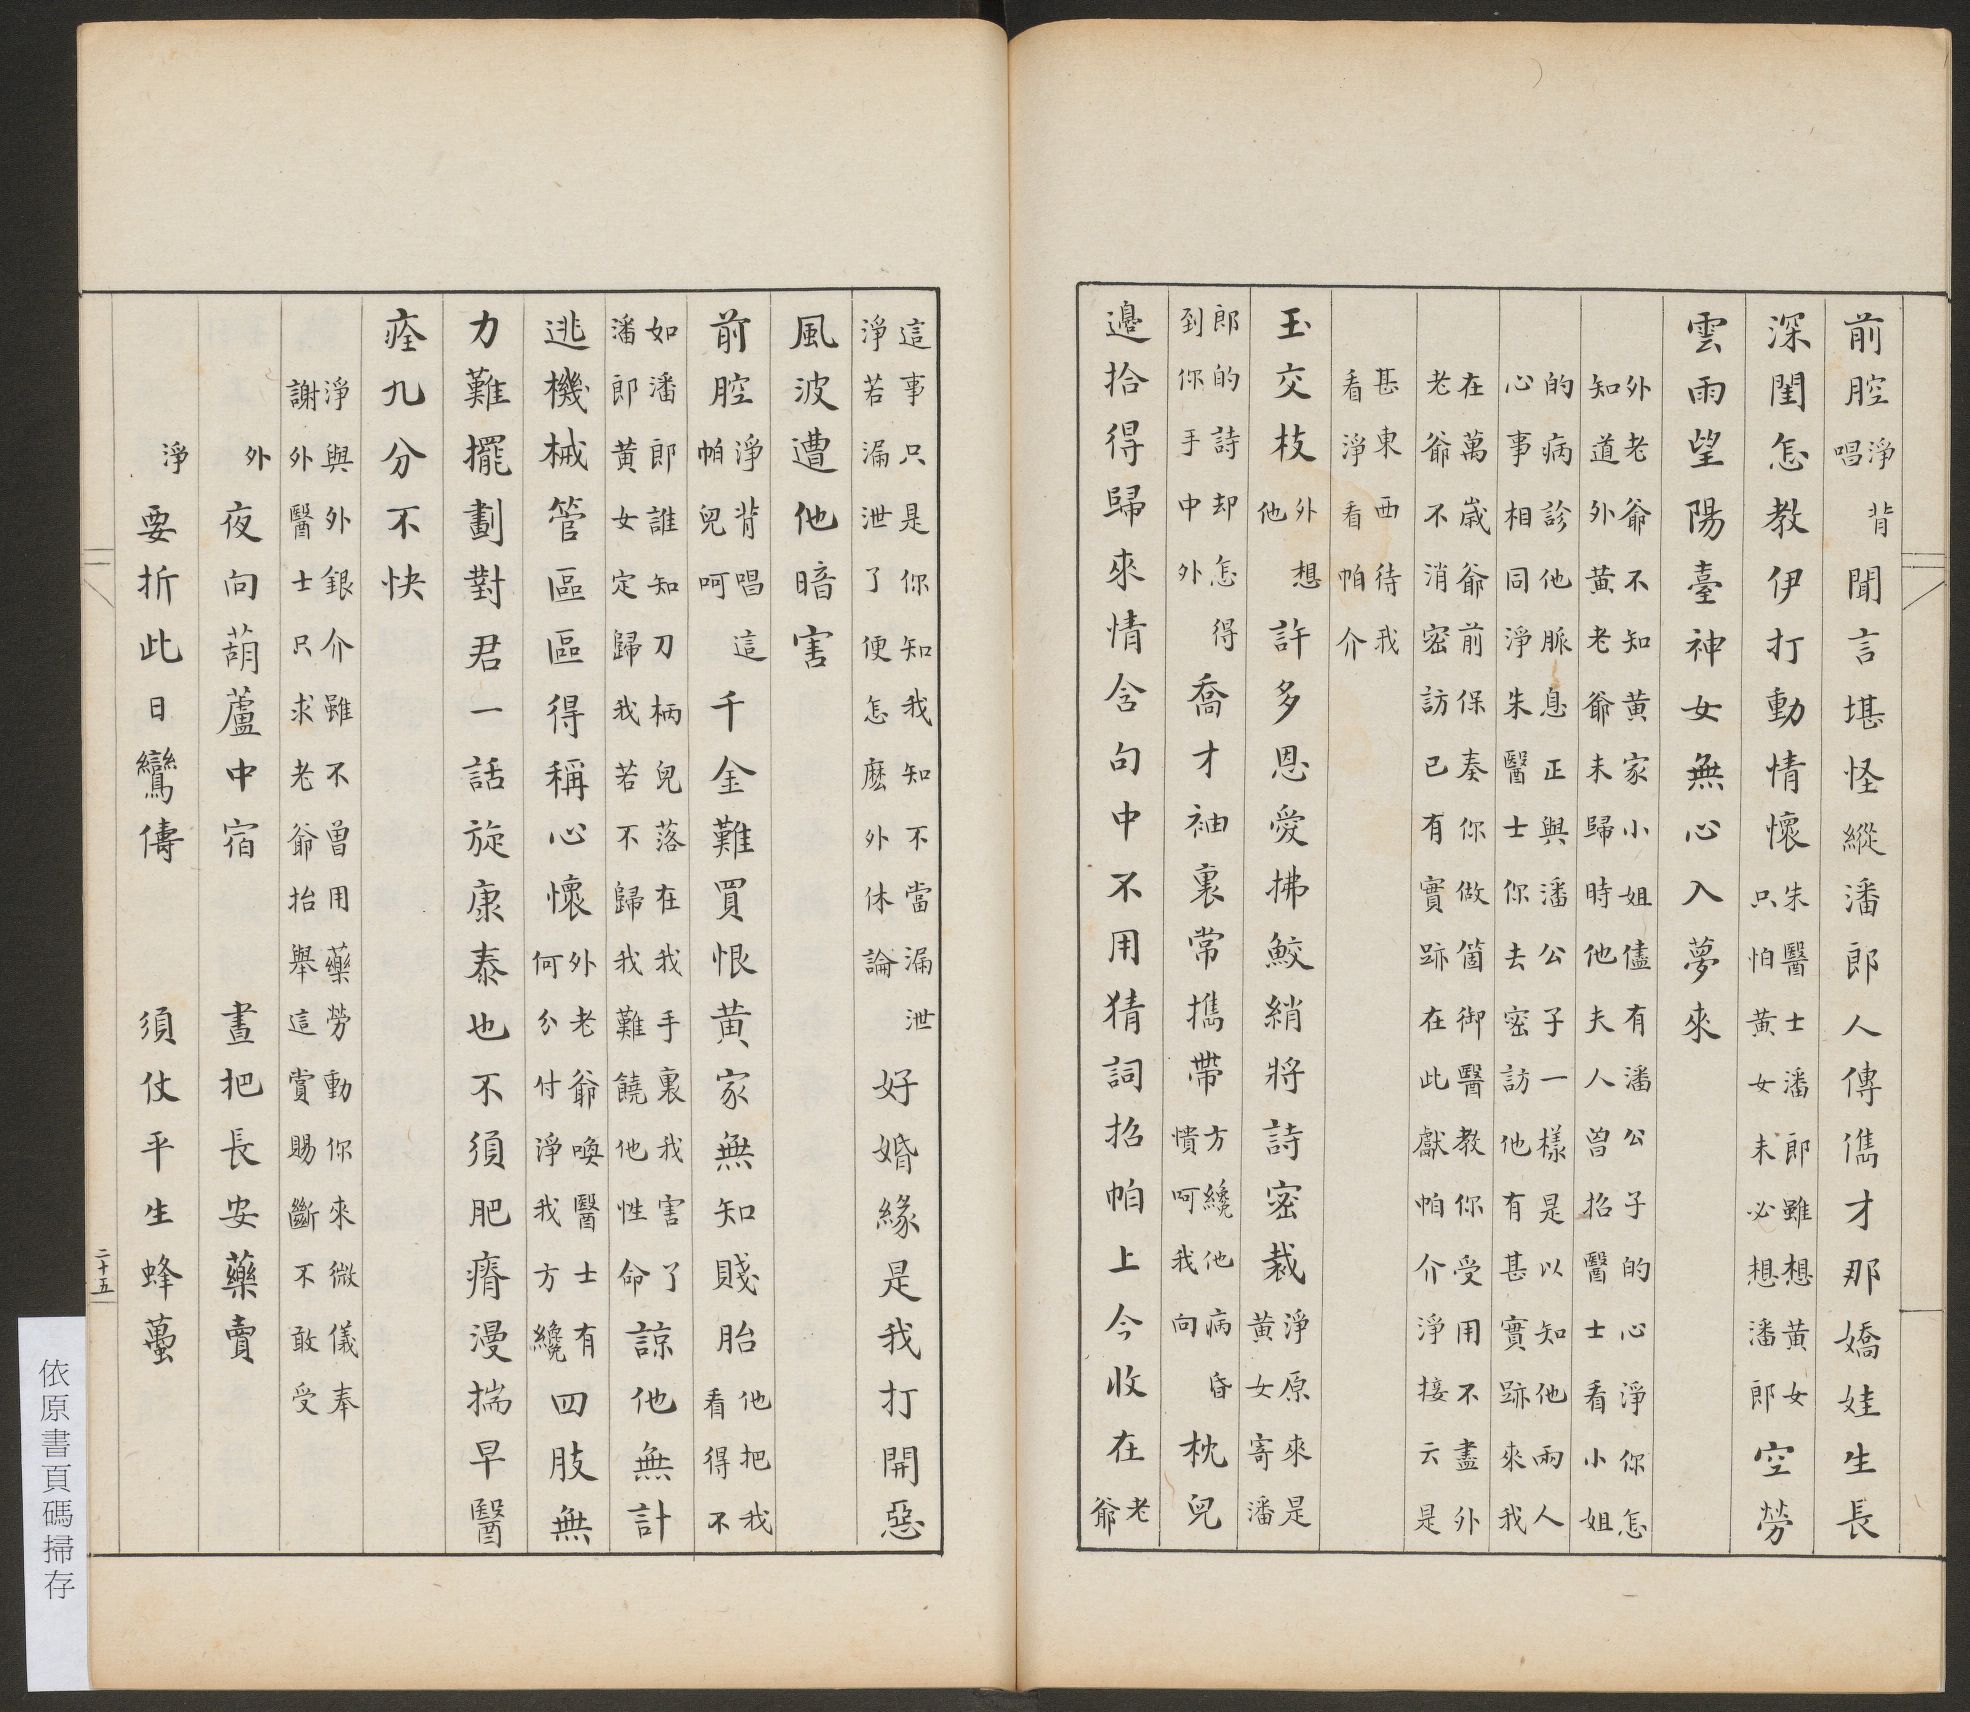 前腔淨背唱聞言堪怪縱潘郎人傳儁才那嬌娃生長
深閨怎教伊打動情懷朱醫士潘郎雖想黃女只怕黃女未必想潘郎空勞
雲雨望陽臺神女無心入夢來
外老爺不知黃家小姐儘有潘公子的心淨你怎知道外黃老爺未歸時他夫人曾招醫士看小姐
的病診他脈息正與潘公子一樣是以知他兩人心事相同淨朱醫士你去密訪他有甚實跡來我
在萬歲爺前保奏你做箇御醫教你受用不盡外老爺不消密訪已有實跡在此獻帕介淨接云是
甚東西待我看淨看帕介
玉交枝外想他許多恩愛拂鮫綃將詩密裁淨原來是黃女寄潘
郎的詩却怎得到你手中外喬才袖裏常攜帶方纔他病昏憒呵我向枕兒
邊拾得歸來情含句中不用猜詞招帕上今收在老爺
這事只是你知我知不當漏泄淨若漏泄了便怎麽外休論好婚緣是我打開惡
風波遭他暗害
前腔淨背唱這帕兒呵千金難買恨黃家無知賤胎他把我看得不
如潘郎誰知刀柄兒落在我手裏我害了潘郎黃女定歸我若不歸我我難饒他性命諒他無計
逃機械管區區得稱心懷外老爺喚醫士有何分付淨我方纔四肢無
力難擺劃對君一話旋康泰也不須肥瘠漫揣早醫
痊九分不快
淨與外銀介雖不曾用藥勞動你來微儀奉謝外醫士只求老爺抬舉這賞賜斷不敢受
外夜向葫蘆中宿　晝把長安藥賣
淨要折此日鸞儔　須仗平生蜂蠆
二十五
依原書頁碼掃存